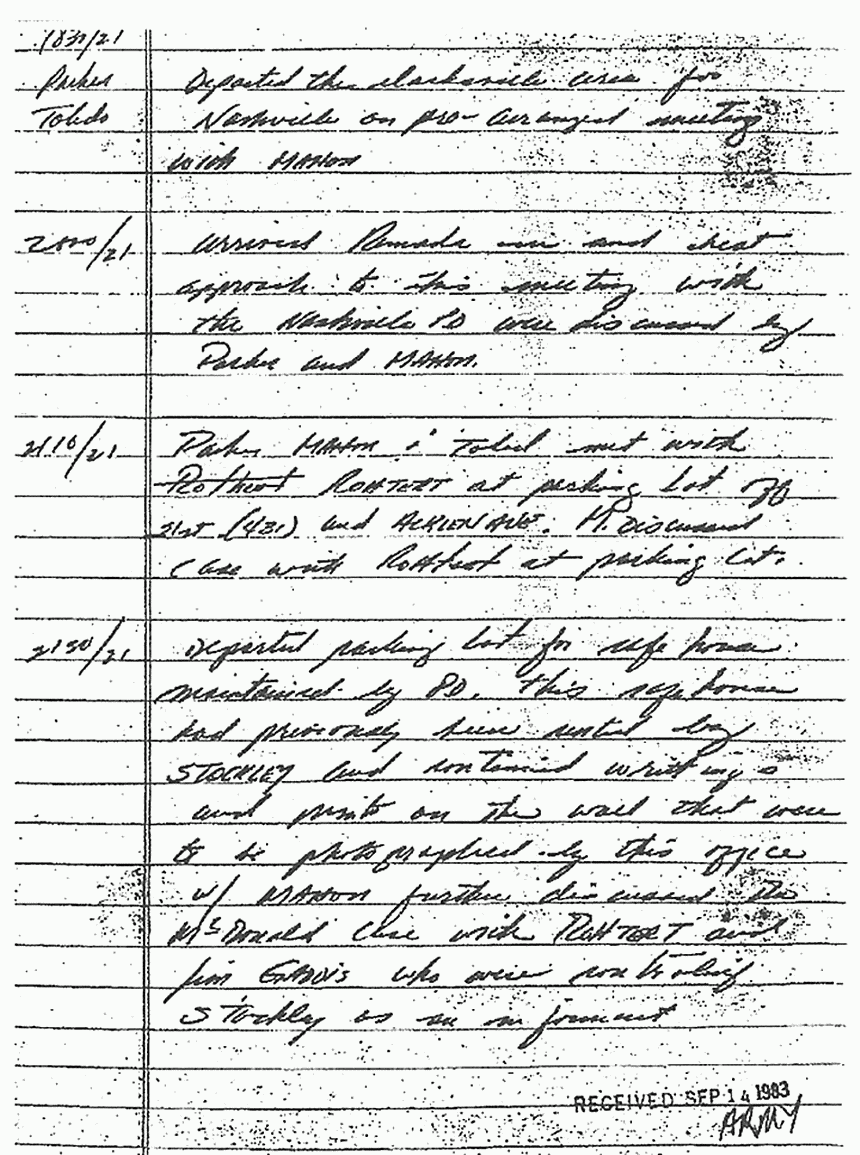 1830/21
Parker
Toledo
Departed the Clarksville area for
Nashville on pre-arranged meeting
with MAHON
2000/21
arrived Ramada inn and
approach to this meeting with
the Nashville PD were discussed by
Parker and MAHON.
2110/21
Parker MAHON & Toled met with
Rothert ROHTERT at parking Lot off
21st (431) and ACKLEN AVE. M. Discussed
case with Rohtert at parking lot.
2130/21
Departed parking lot for safe house
maintained by PD. This safehouse
had previously been rented by
STOCKLEY and contained writings
and prints on the wall that were
to be photographed by this office
w/ MAHON further discussed the
McDonald Case with ROHTERT and
Jim GADDIS who were controling
Stockly as an informant
RECEIVED SEP 14 1983
ARMY